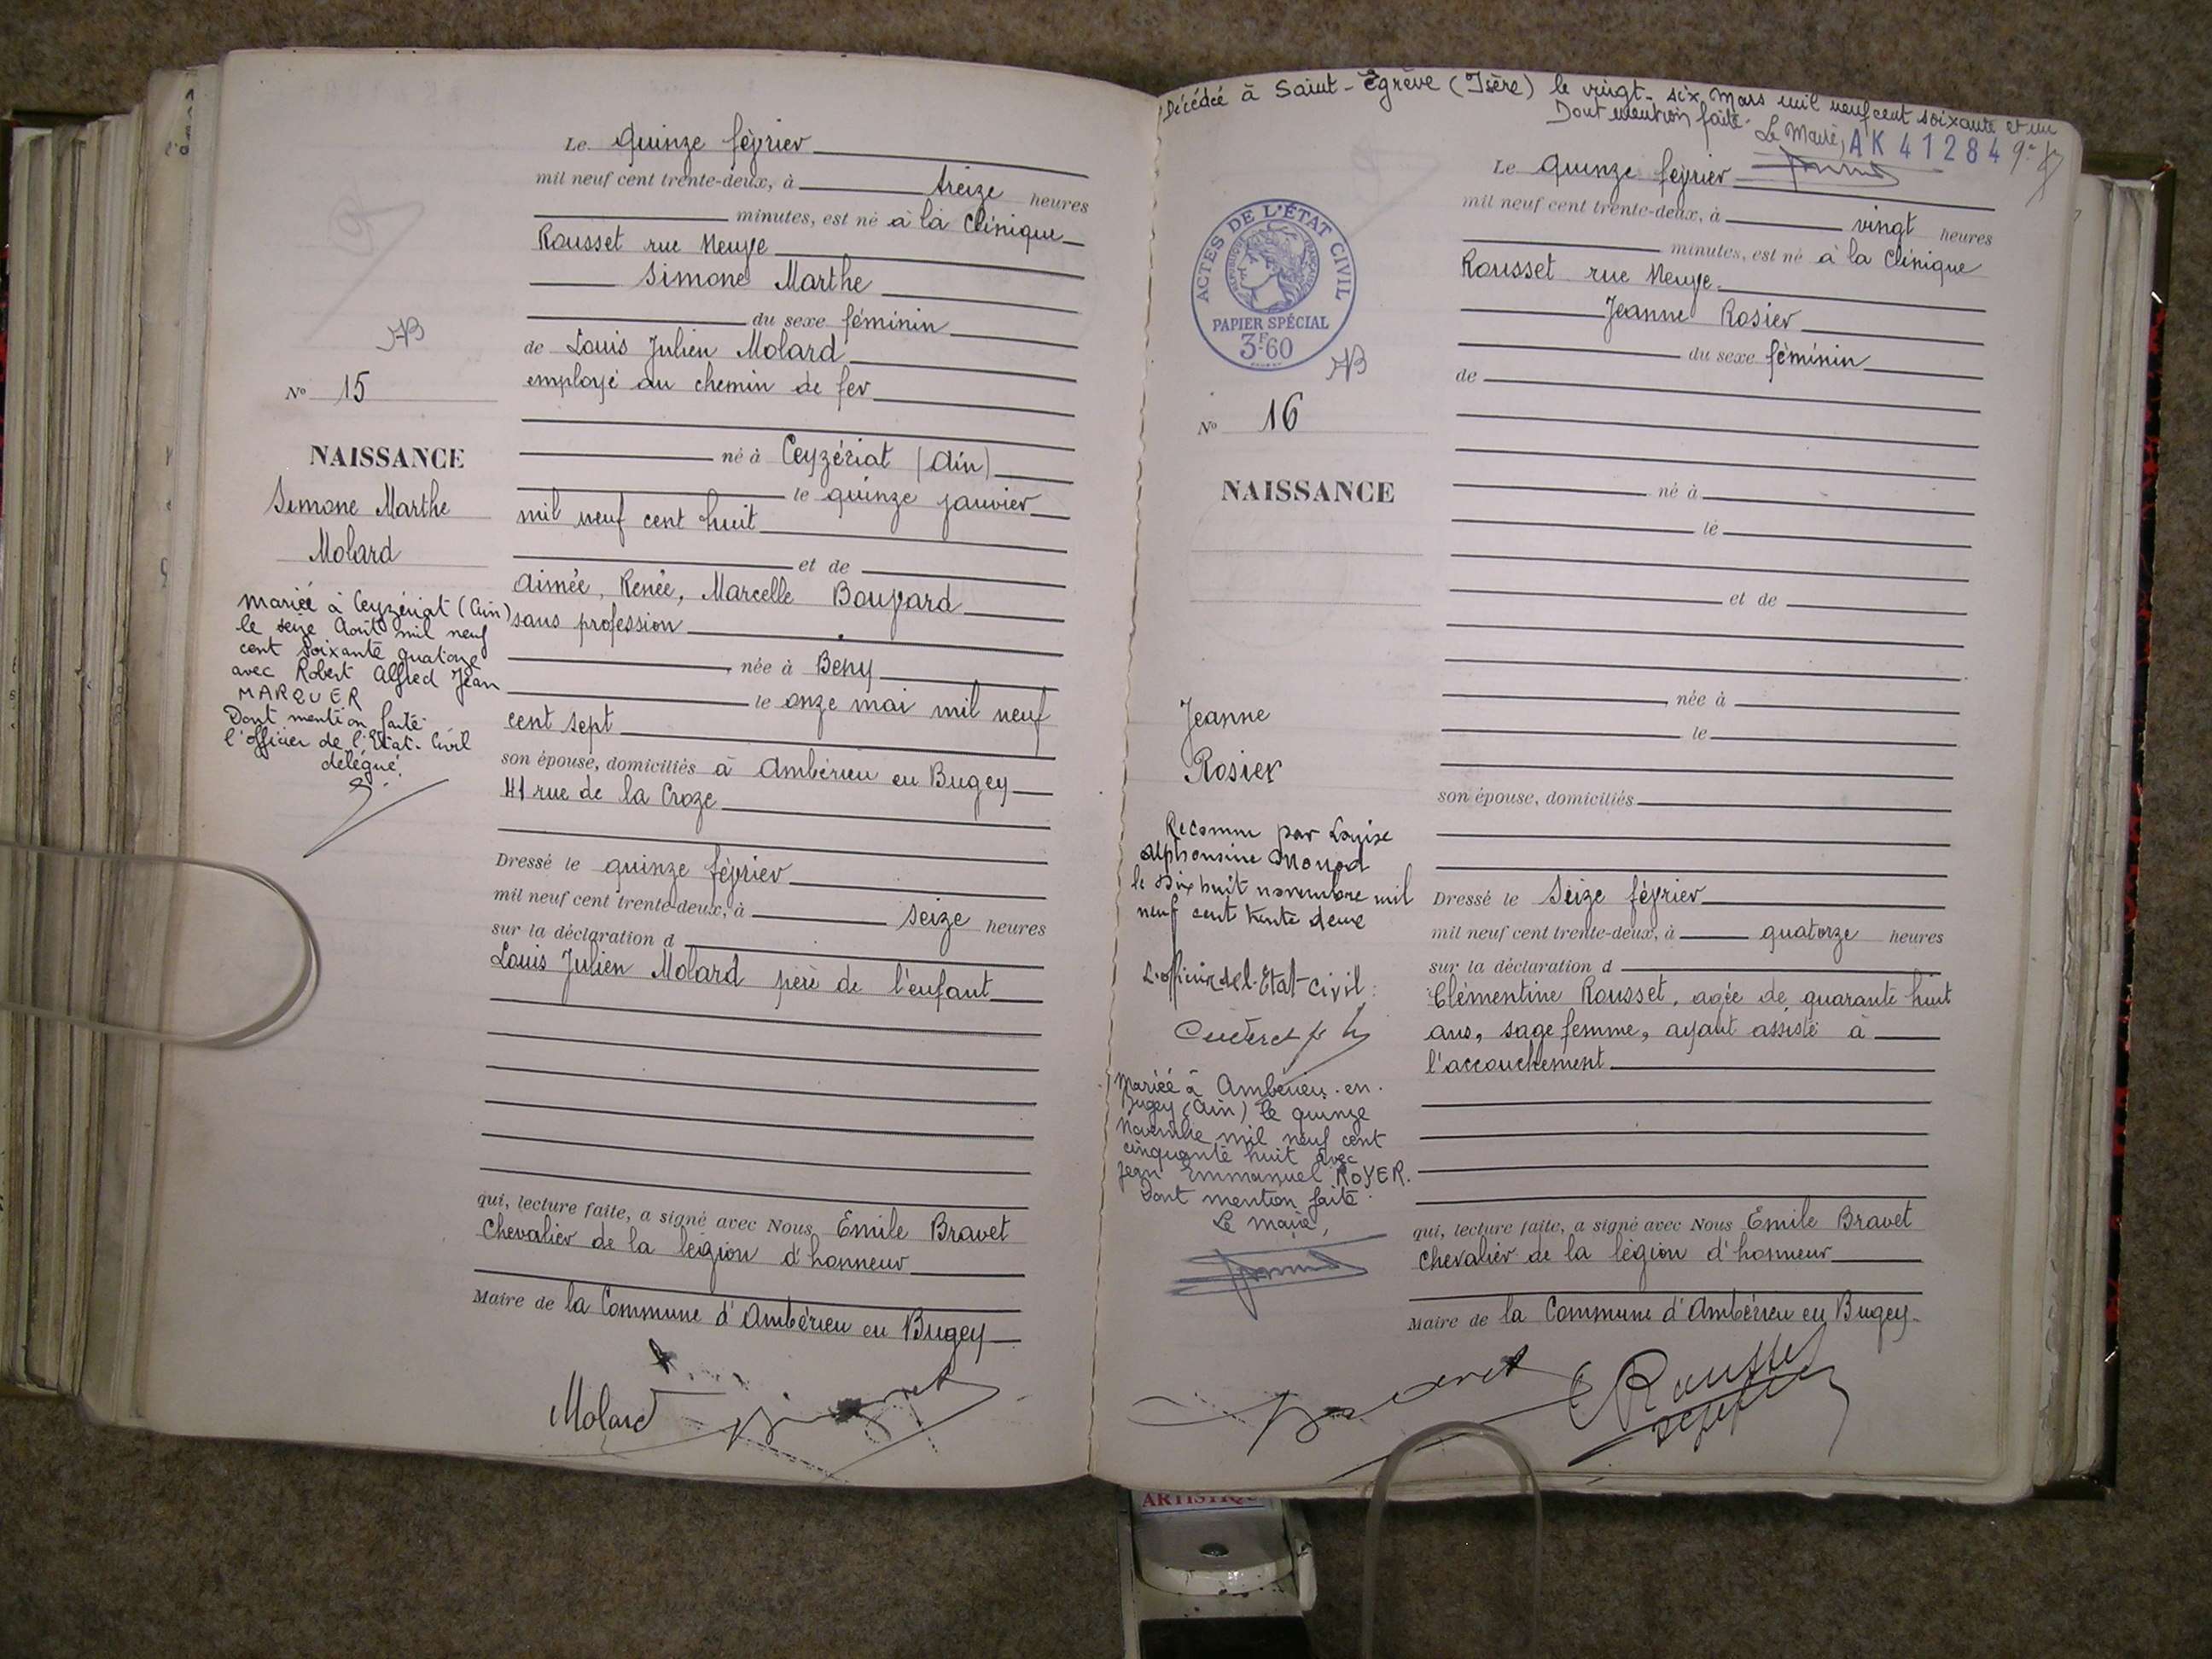 Le quinze février
mil neuf cent trente-deux, à treize heures
minutes, est né à la Clinique
Rousset rue Neuve
Simone Marthe
du sexe féminin
de Louis Julien Molard
employé au chemin de fer
né à Ceyzériat (Ain)
le quinze janvier
mil neuf cent huit
et de
Aimée, Renée, Marcelle Bouvard
sans profession
née à Beny
le onze mai mil neuf
cent sept
son épouse, domiciliés à Ambérieu en Bugey
41 rue de la Croze
Dressé le quinze février
mil neuf cent trente-deux, à seize heures
sur la déclaration d
Louis Julien Molard père de l'enfant
qui, lecture faite, a signé avec Nous Emile Bravet
Chevalier de la légion d'honneur
Maire de la Commune d'Ambérieu en Bugey
Molard
No 15
NAISSANCE
Simone Marthe
Molard
Mariée à Ceyzériat (Ain)
le seize Août mil neuf
cent soixante quatorze
avec Robert Alfred Jean
MARQUER
Dont mention faite
l'officier de l'Etat-Civil
délégué.
Décédée à Saint-Egrève (Isère) le vingt-six Mars mil neuf cent soixante et un
Dont mention faite.
Le Maire,
AK 41284
Le quinze février
mil neuf cent trente-deux, à vingt heures
minutes, est né à la Clinique
Rousset rue Neuve.
Jeanne Rosier
du sexe féminin
de
né à
le
et de
née à
le
son épouse, domiciliés
Dressé le Seize février
mil neuf cent trente-deux, à quatorze heures
sur la déclaration d
Clémentine Rousset, agée de quarante huit
ans, sage femme, ayant assisté à
l'accouchement
qui, lecture faite, a signé avec Nous Emile Bravet
Chevalier de la légion d'honneur
Maire de la Commune d'Ambérieu en Bugey
ACTES DE L'ÉTAT CIVIL
PAPIER SPÉCIAL
3F.60
No 16
NAISSANCE
Jeanne
Rosier
Reconnue par Louise
Alphonsine Monod
le dix huit novembre mil
neuf cent trente deux
L'officier de l'Etat-Civil:
Mariée à Ambérieu-en-
Bugey (Ain) le quinze
Novembre mil neuf cent
cinquante huit avec
Jean Emmanuel ROYER.
Dont mention faite.
Le Maire,
ARTISTIQUE